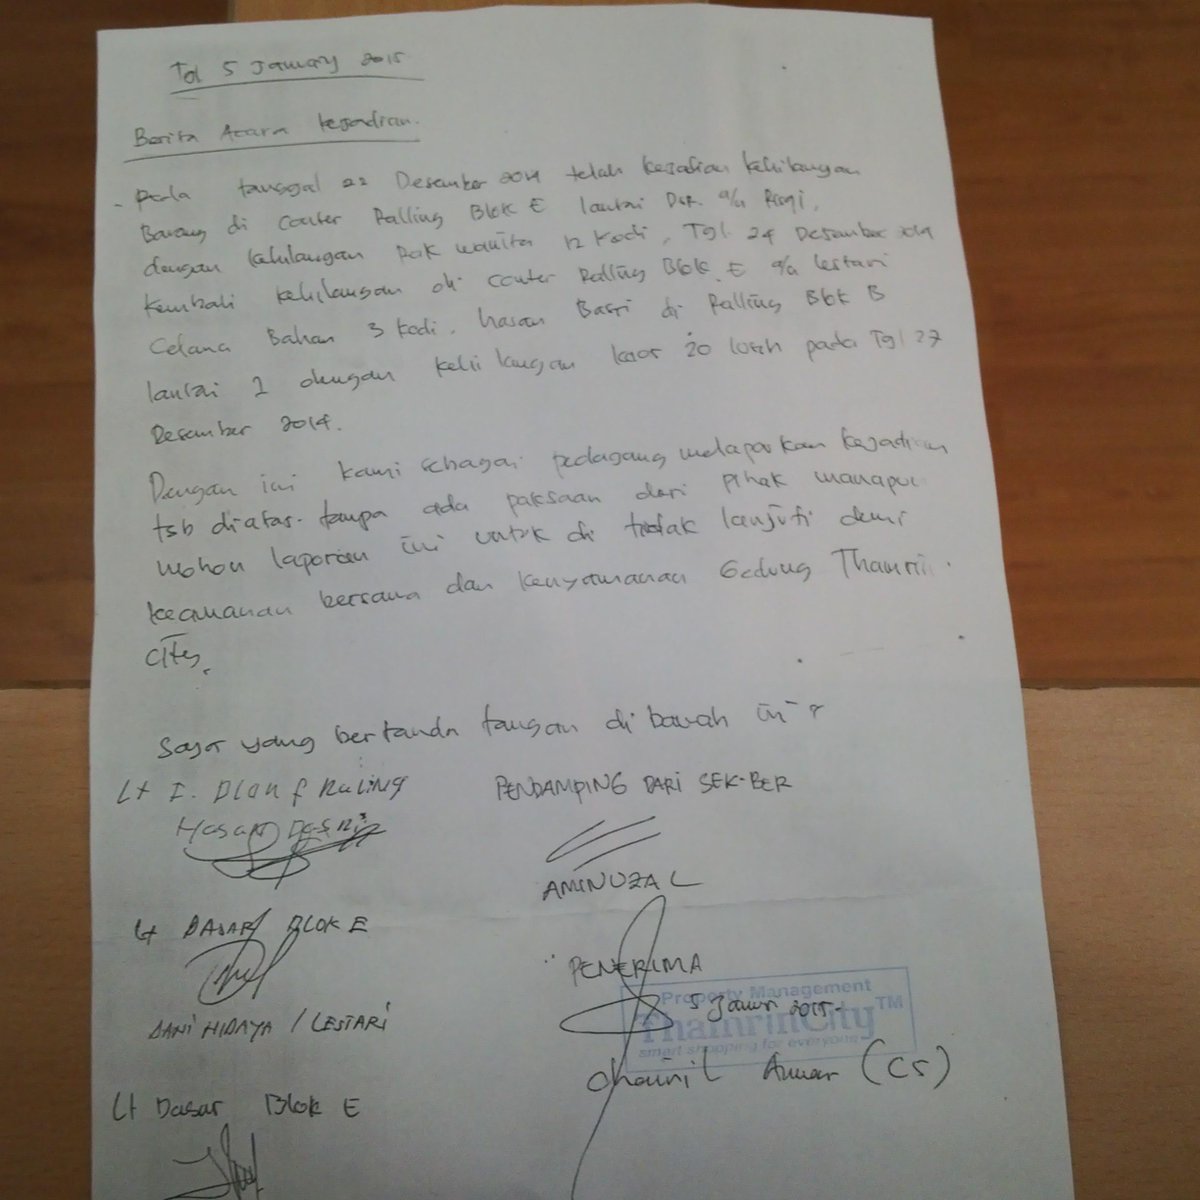 Tgl 5 January 2015
Berita Acara Kejadian.
- Pada tanggal 22 Desember 2014 telah kejadian kehilangan
Barang di Couter Ralling Blok E lantai Dsr. a/n
dengan kehilangan Rok wanita 12 Kodi, Tgl. 24 Desember 2014
Kembali kehilangan di couter Ralling Blok E a/n lestari
Celana Bahan 3 Kodi, hasan Basri di Ralling Blok B
lantai 1 dengan kehilangan kaos 20 lusin pada Tgl 27
Desember 2014.
Dengan ini kami sebagai pedagang melaporkan kejadian
tsb diatas. tanpa ada paksaan dari pihak manapun
mohon laporan ini untuk di tindak lanjuti demi
keamanan bersama dan kenyamanan Gedung Thamrin
City.
Saya yang bertanda tangan di bawah ini
Lt I. Blan f Ruling
Hasan Basri
PENDAMPING DARI SEK-BER
AMINUZAL
Lt DASAR BLOK E
DANI HIDAYA / LESTARI
PENERIMA
Property Management
5 Januari 2015
ThamrinCity™
smart shopping for everyone
Chairil Anwar (CS)
Lt Dasar Blok E